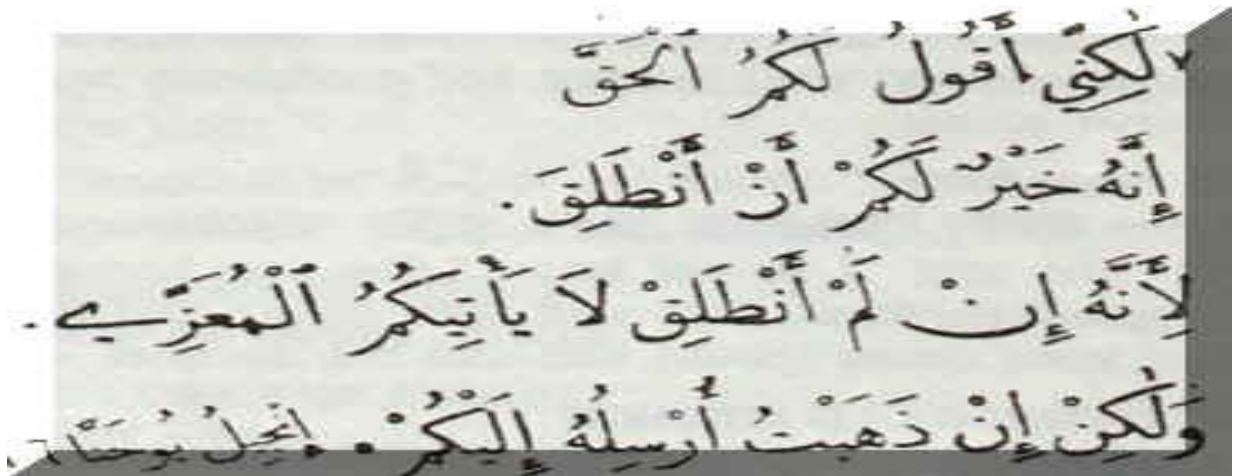 ٧ لٰكِنِّي أَقُولُ لَكُمُ ٱلْحَقَّ
إِنَّهُ خَيْرٌ لَكُمْ أَنْ أَنْطَلِقَ.
لِأَنَّهُ إِنْ لَمْ أَنْطَلِقْ لَا يَأْتِيكُمُ ٱلْمُعَزِّي.
وَلٰكِنْ إِنْ ذَهَبْتُ أُرْسِلُهُ إِلَيْكُمْ. إنجيلُ يُوحَنَّا